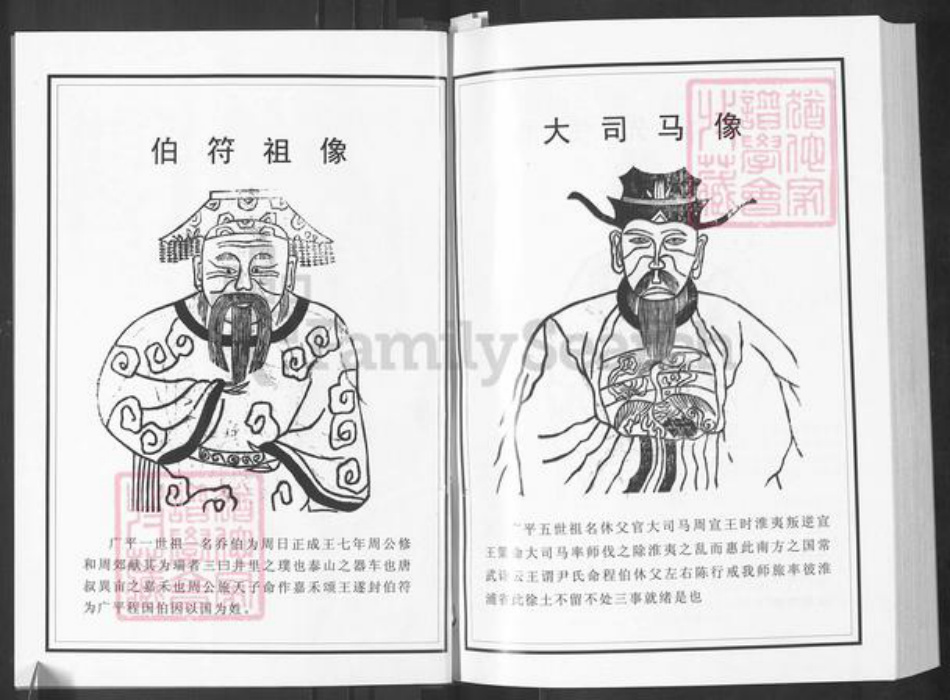 伯符祖像
广平一世祖一名乔伯为周日正成王七年周公修
和周郊献其为瑞者三曰井里之璞也泰山之器车也唐
叔異亩之嘉禾也周公旅天子命作嘉禾颂王遂封伯符
为广平程国伯因以国为姓。
大司马像
广平五世祖名休父官大司马周宣王时淮夷叛逆宣
王命大司马率师伐之除淮夷之乱而惠此南方之国常
武诗云王谓尹氏命程伯休父左右陈行戒我师旅率彼淮
浦省此徐土不留不处三事就绪是也
FamilySearch